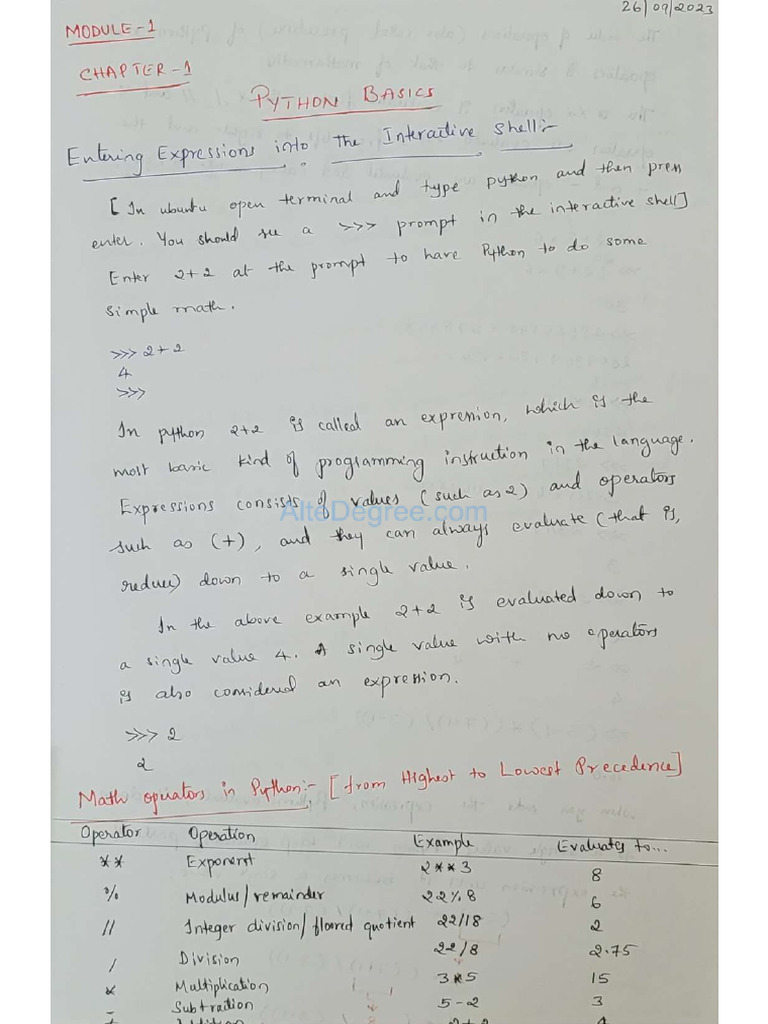 26/09/2023
MODULE-1
CHAPTER-1
PYTHON BASICS
Entering Expressions into The Interactive Shell:-
[In ubuntu open terminal and type python and then press
enter. You should see a >>> prompt in the interactive shell]
Enter 2+2 at the prompt to have Python to do some
simple math.
>>> 2+2
4
>>>
In python 2+2 is called an expression, which is the
most basic kind of programming instruction in the language.
Expressions consists of values (such as 2) and operators
AlteDegree.com
such as (+), and they can always evaluate (that is,
reduce) down to a single value.
In the above example 2+2 is evaluated down to
a single value 4. A single value with no operators
is also considered an expression.
>>> 2
2
Math operators in Python:- [from Highest to Lowest Precedence]
Operator Operation Example Evaluates to...
** Exponent 2**3 8
% Modulus/remainder 22%8 6
// Integer division/floored quotient 22//8 2
/ Division 22/8 2.75
* Multiplication 3*5 15
- Subtraction 5-2 3
+ Addition 2+2 4